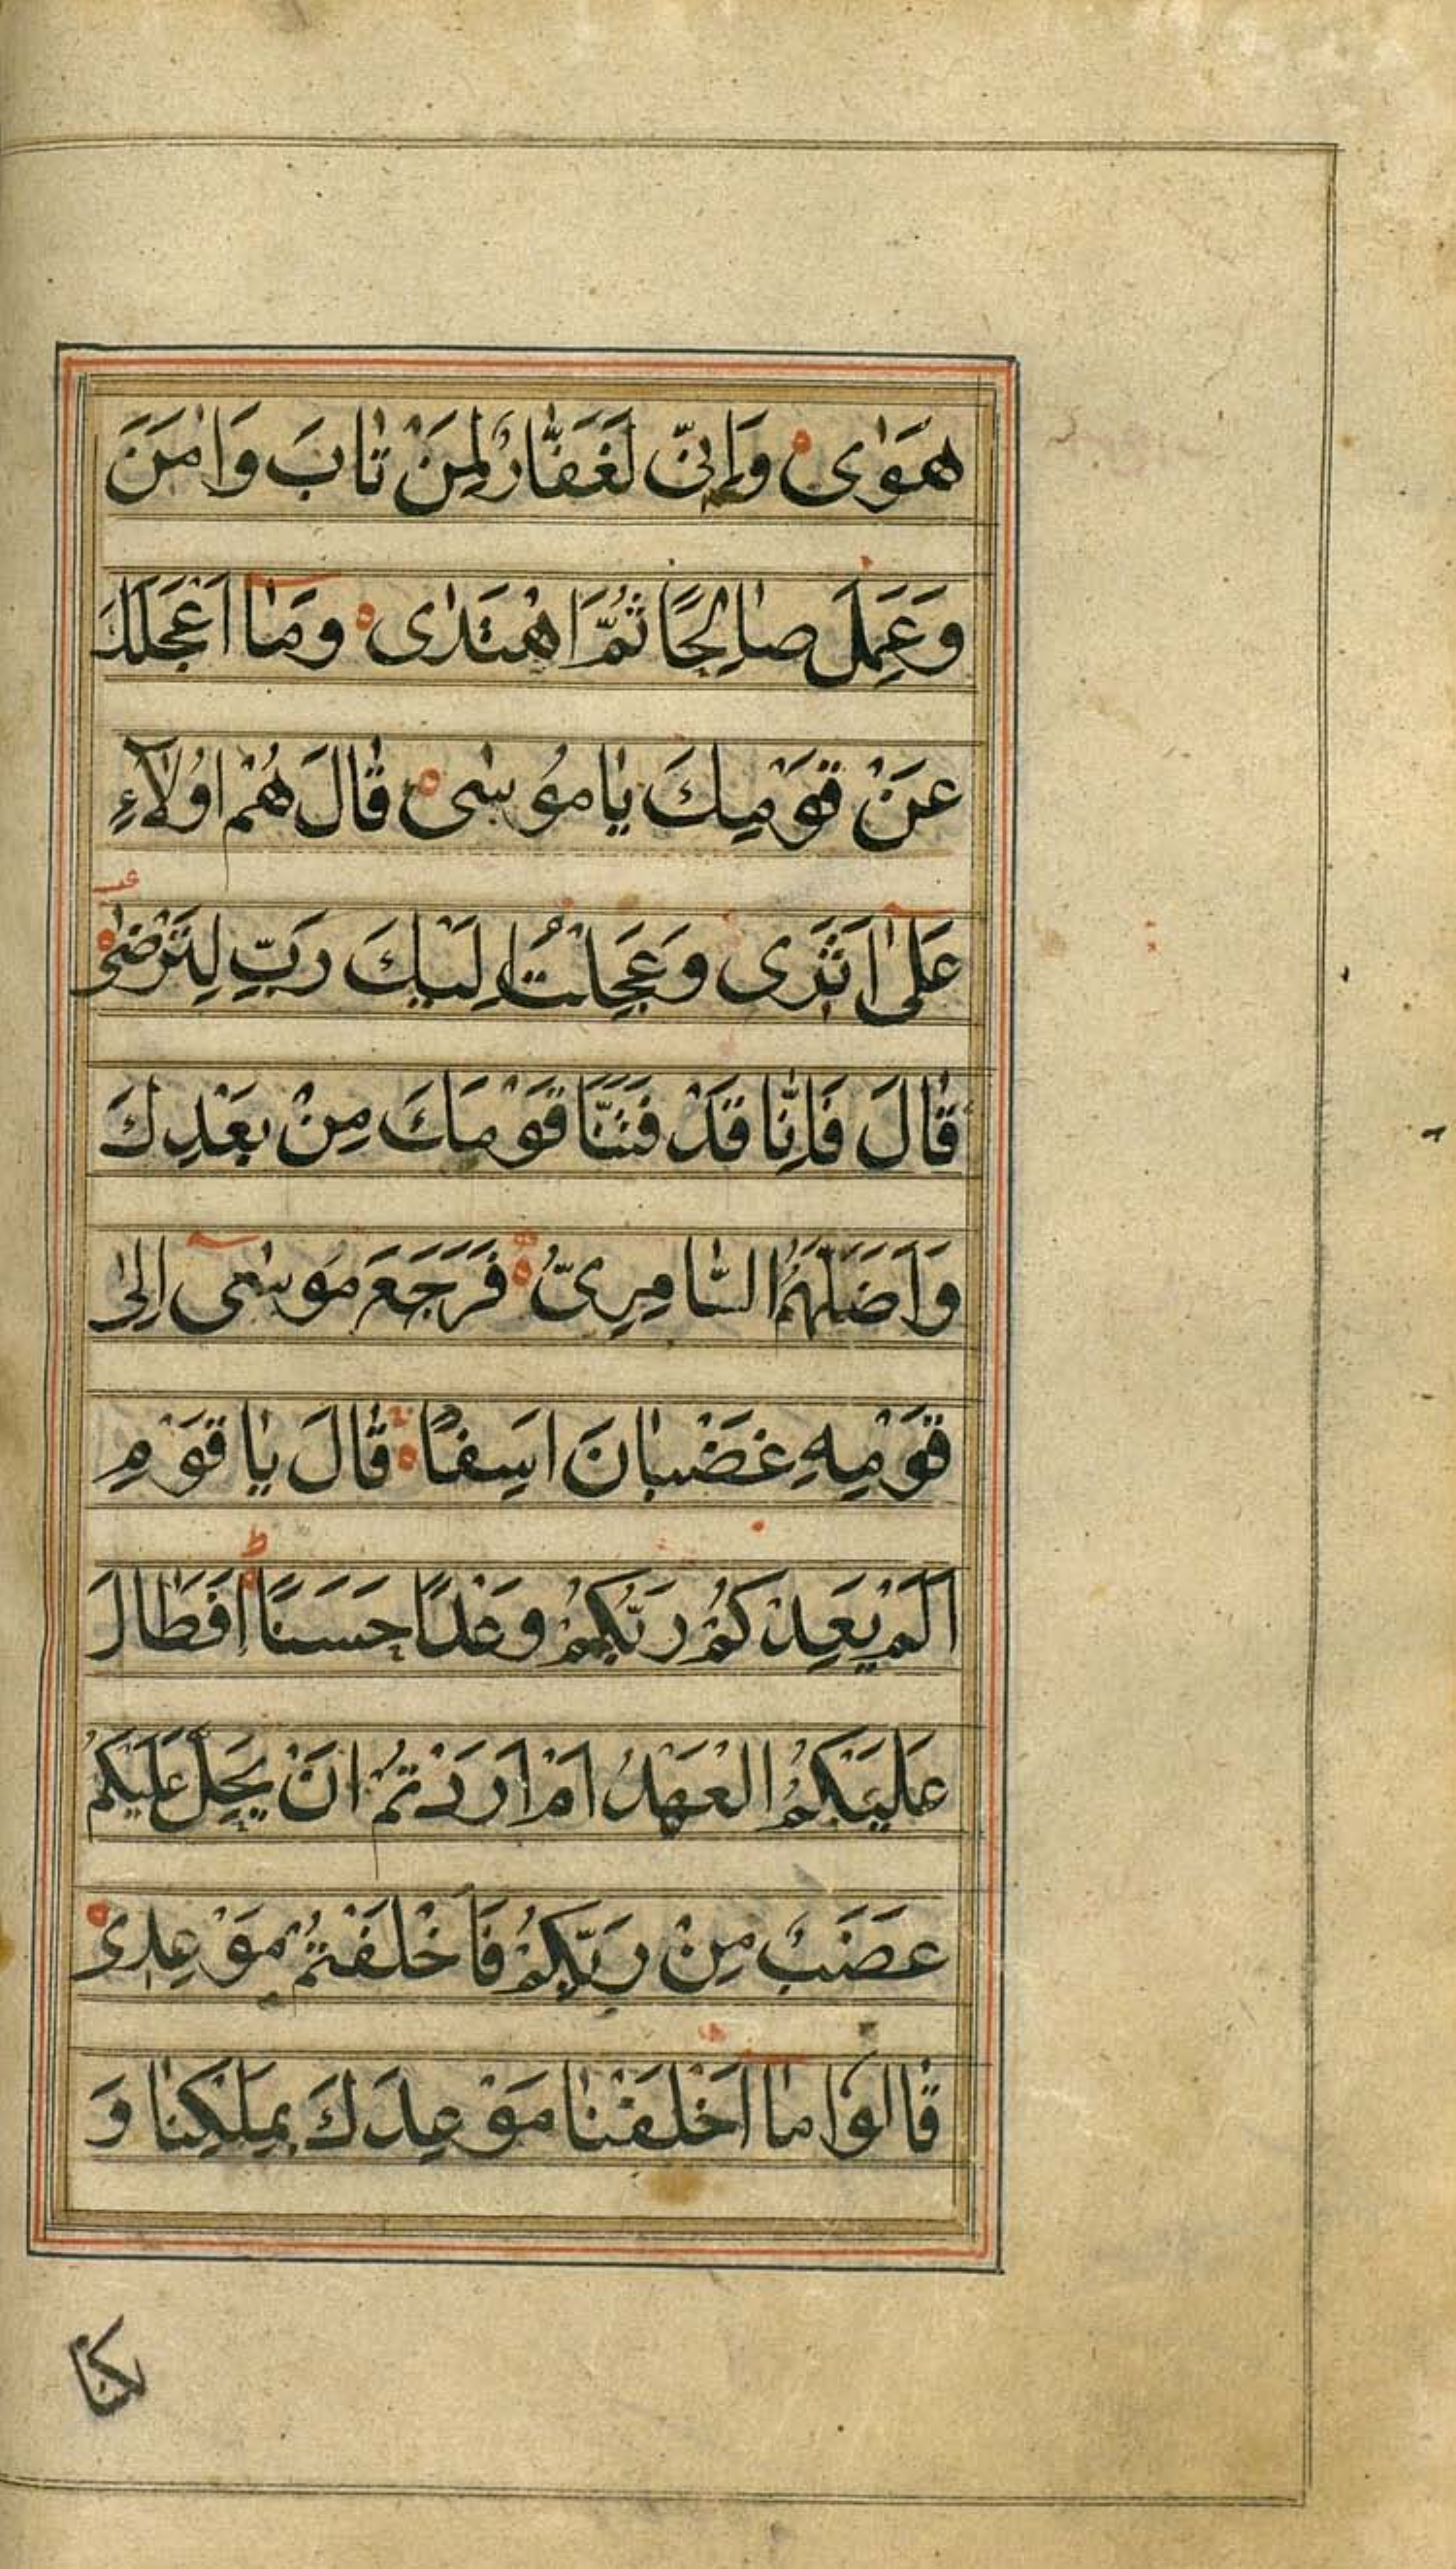 هَوٰى وَاِنّى لَغَفّٰارٌ لِمَنْ تٰابَ وَاٰمَنَ
وَعَمِلَ صٰالِحًا ثُمَّ اهْتَدٰى وَمٰا اَعْجَلَكَ
عَنْ قَوْمِكَ يٰا مُوسٰى قٰالَ هُمْ اُولٰٓاءِ
عَلٰى اَثَرى وَعَجِلْتُ اِلَيْكَ رَبِّ لِتَرْضٰى
قٰالَ فَاِنّٰا قَدْ فَتَنَّا قَوْمَكَ مِنْ بَعْدِكَ
وَاَضَلَّهُمُ السّٰامِرِىُّ فَرَجَعَ مُوسٰى اِلٰى
قَوْمِهِ غَضْبٰانَ اَسِفًا قٰالَ يٰا قَوْمِ
اَلَمْ يَعِدْكُمْ رَبُّكُمْ وَعْدًا حَسَنًا اَفَطٰالَ
عَلَيْكُمُ الْعَهْدُ اَمْ اَرَدْتُمْ اَنْ يَحِلَّ عَلَيْكُمْ
غَضَبٌ مِنْ رَبِّكُمْ فَاَخْلَفْتُمْ مَوْعِدى
قٰالُوا مٰا اَخْلَفْنٰا مَوْعِدَكَ بِمَلْكِنٰا وَ
لكنا